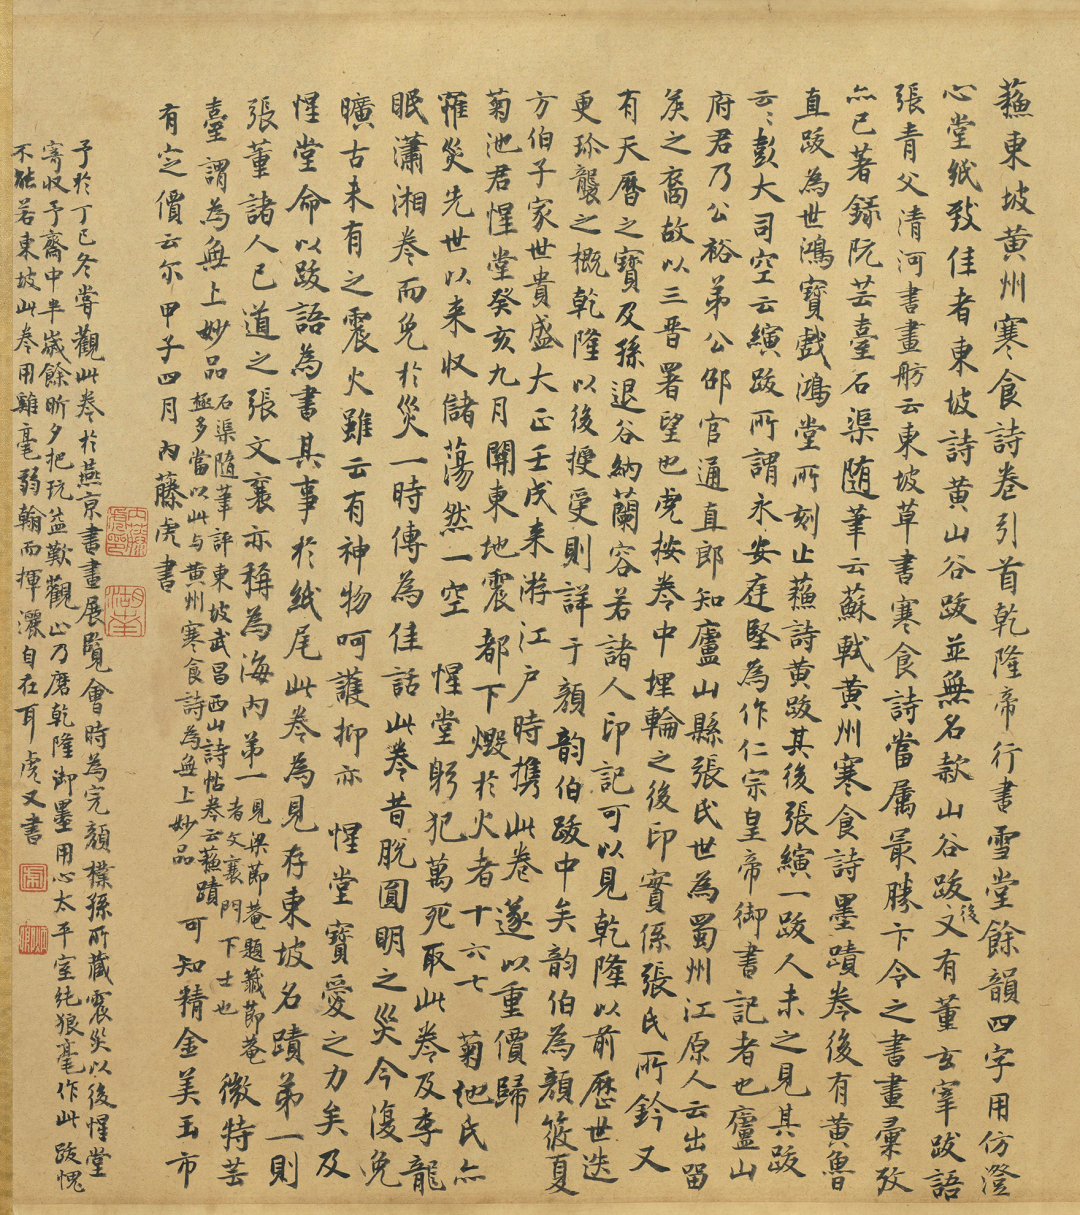 蘓東坡黃州寒食詩卷引首乾隆帝行書雪堂餘韻四字用仿澄
心堂紙致佳者東坡詩黃山谷跋並無名款山谷跋後又有董玄宰跋語
張青父清河書畫舫云東坡草書寒食詩當属最勝卞令之書畫彙攷
亦已著錄阮芸臺石渠随筆云蘇軾黃州寒食詩墨蹟卷後有黃魯
直跋為世鴻寶戲鴻堂所刻止蘓詩黃跋其後張縯一跋人未之見其跋
云〻彭大司空云縯跋所謂永安庭堅為作仁宗皇帝御書記者也廬山
府君乃公裕弟公邵官通直郎知廬山縣張氏世為蜀州江原人云出留
矦之裔故以三晋署望也虎按卷中埋輪之後印實係張氏所鈐又
有天曆之寶及孫退谷納蘭容若諸人印記可以見乾隆以前歷世迭
更珍襲之概乾隆以後授受則詳于顔韵伯跋中矣韵伯為顔筱夏
方伯子家世貴盛大正壬戌来游江户時携此卷遂以重價歸
菊池君惺堂癸亥九月關東地震都下燬於火者十六七 菊池氏亦
罹災先世以来収儲蕩然一空 惺堂躬犯萬死取此卷及李龍
眠瀟湘卷而免於災一時傳為佳話此卷昔脱圓明之災今復免
曠古未有之震火雖云有神物呵護抑亦 惺堂寶愛之力矣及
惺堂命以跋語為書其事於紙尾此卷為見存東坡名蹟第一則
張董諸人已道之張文襄亦稱為海内第一 見梁節菴題籤節菴者文襄門下士也 微特芸
臺謂為無上妙品 石渠隨筆評東坡武昌西山詩帖卷云蘓蹟極多當以此与黄州寒食詩為無上妙品 可知精金美玉市
有定價云尔甲子四月内藤虎書
内藤虎印
湖南
予於丁巳冬嘗觀此卷於燕京書畫展覧會時為完顔樸孫所藏震災以後惺堂
寄収予齋中半歳餘昕夕把玩益歎觀止乃磨乾隆御墨用心太平室純狼毫作此跋愧
不能若東坡此卷用雞毫弱翰而揮灑自在耳虎又書